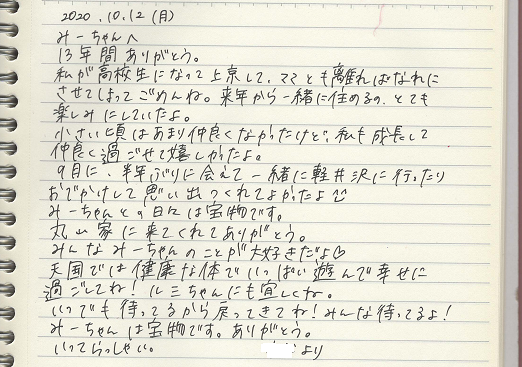 2020.10.12 (月)
みーちゃんへ
13年間ありがとう。
私が高校生になって上京して、ママとも離ればなれに
させてしまってごめんね。来年から一緒に住めるの、とても
楽しみにしていたよ。
小さい頃はあまり仲良くなかったけど、私も成長して
仲良く過ごせて嬉しかったよ。
9月に、半年ぶりに会えて一緒に軽井沢に行ったり
おでかけして思い出つくれてよかったよ
みーちゃんとの日々は宝物です。
丸山家に来てくれてありがとう。
みんなみーちゃんのことが大好きだよ♡
天国では健康な体でいっぱい遊んで幸せに
過ごしてね!ルミちゃんにも宜しくね。
いつでも待ってるから戻ってきてね!みんな待ってるよ!
みーちゃんは宝物です。ありがとう。
いってらっしゃい。 より